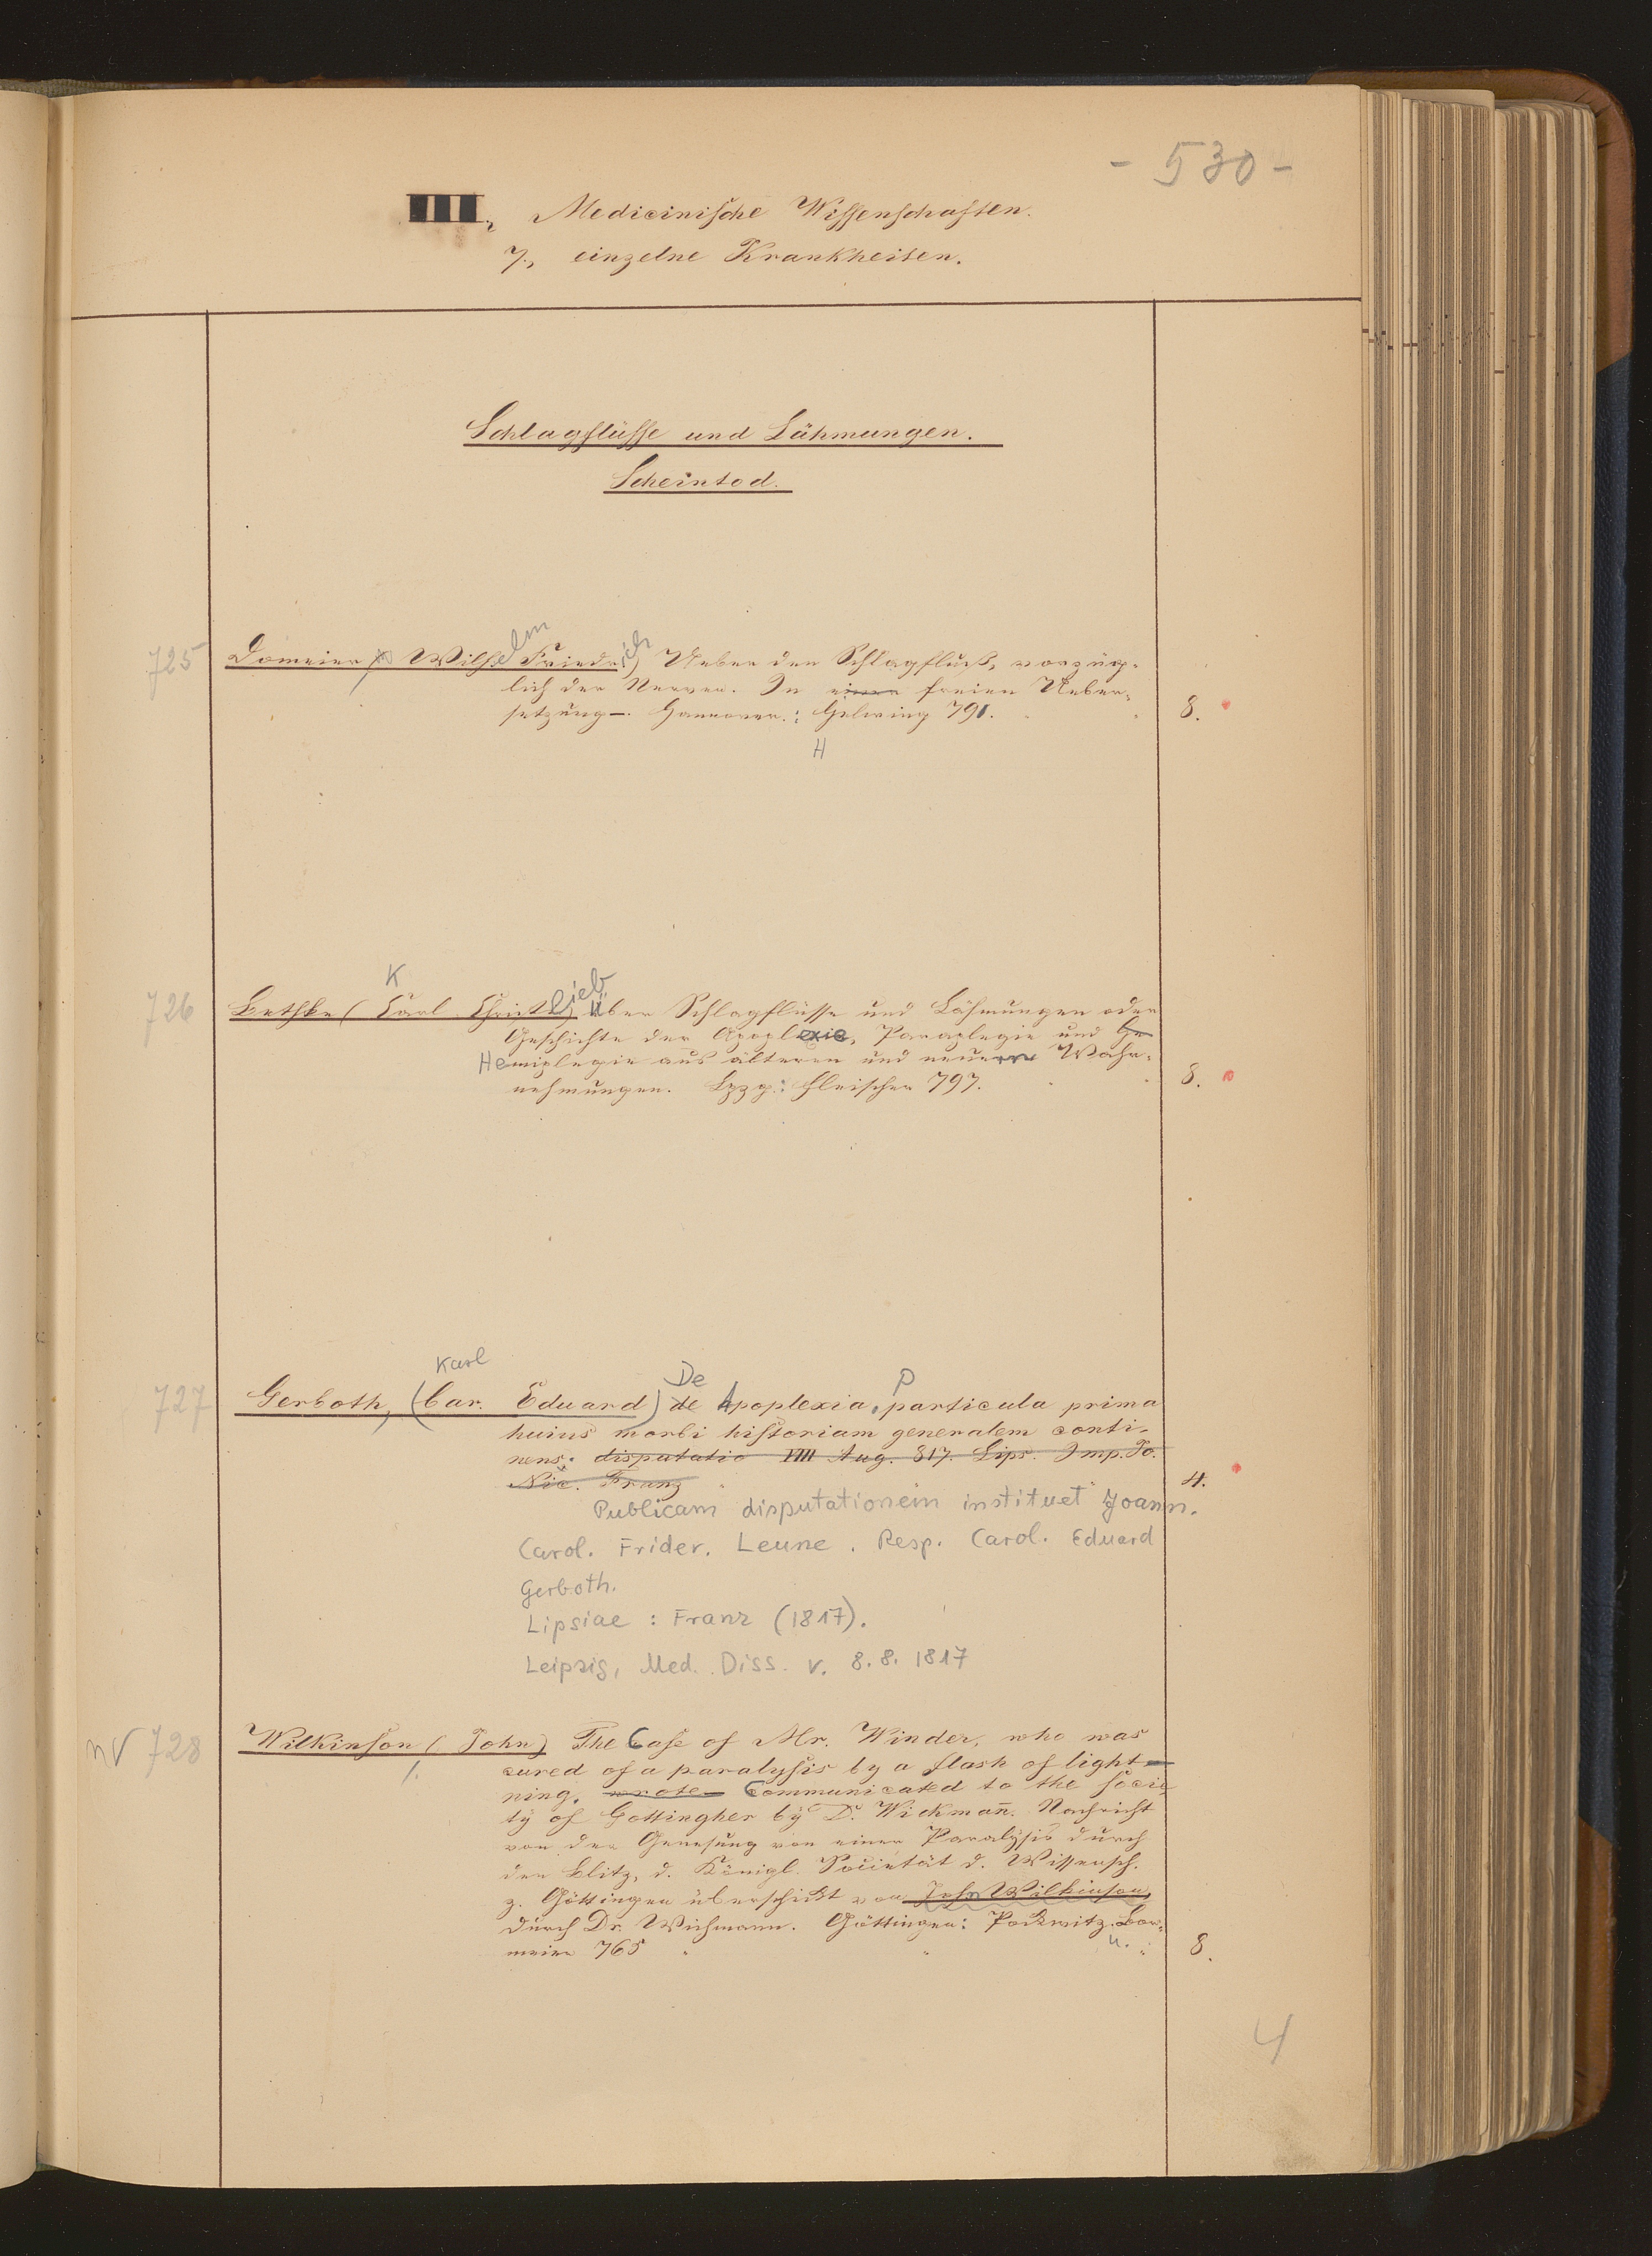 - 530 -
III., Medicinische Wissenschaften.
7., einzelne Krankheiten.
Schlagflüsse und Lähmungen.
Scheintod.
725 Domeier, Wilhelm Friedrich) Ueber den Schlagfluß, vorzüg-
lich der Nerven. In einer freien Ueber-
setzung –. Hannover.: Helwing 791. 8.
H
K
726 Bethke (Carl Christlieb) über Schlagflüsse und Lähmungen oder
Geschichte der Apoplexie, Paraplegie und He
Hemiplegie aus älteren und neueren Wahr-
nehmungen. Lpzg.: Fleischer 797. 8.
Karl De P
727 Gerboth, (Car. Eduard) de Apoplexia, particula prima
huius morbi historiam generalem conti-
nens. disputatio VIII Aug. 817. Lips. Imp. Jo.
Nic. Franz 4.
Publicam disputationem instituet Joann.
Carol. Frider. Leune. Resp. Carol. Eduard
Gerboth.
Lipsiae : Franz (1817).
Leipzig, Med. Diss. v. 8.8. 1817
nV 728 Wilkinson (John) The Case of Mr. Winder, who was
cured of a paralysis by a flash of light-
ning. wrote – Communicated to the socie-
ty of Gottingher by Dr. Wickmañ. Nachricht
von der Genesung von einer Paralysis durch
den Blitz, d. Königl. Societät d. Wissensch.
z. Göttingen überschickt von John Wilkinson,
durch Dr. Wichmann. Göttingen: Pockwitz. Bar-
meier 765 u. 8.
4